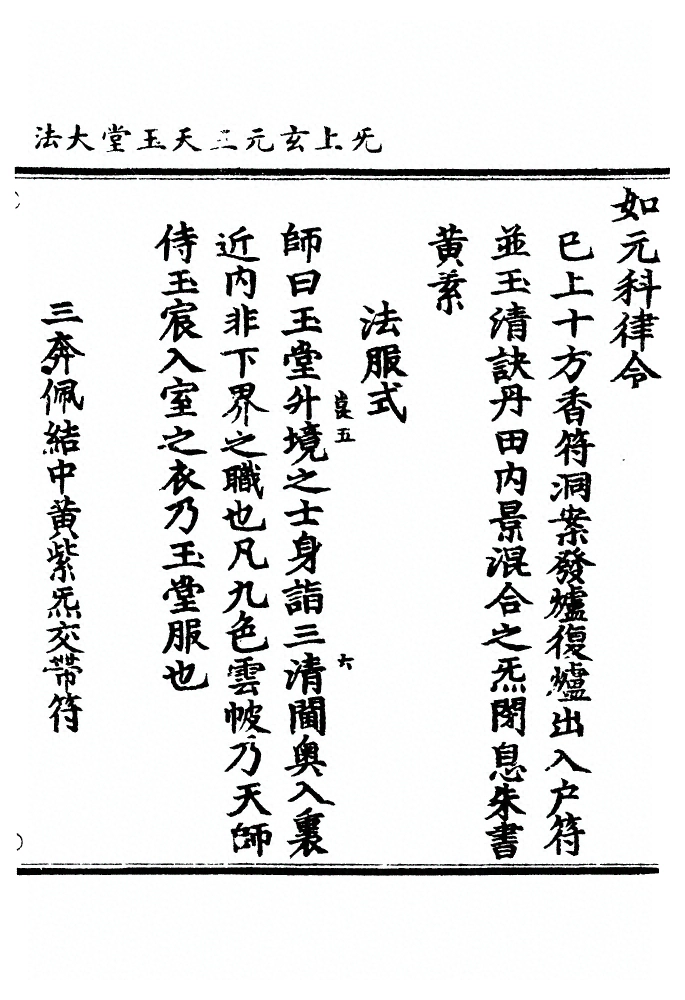 无上玄元三天玉堂大法
如元科律令
已上十方香符洞案發爐復爐出入户符
並玉清訣丹田内景混合之炁閉息朱書
黄素
法服式
師曰玉堂升境之士身詣三清閫奥入裏
近内非下界之職也凡九色雲帔乃天師
侍玉宸入室之衣乃玉堂服也
三奔佩結中黄紫炁交帶符
五
六